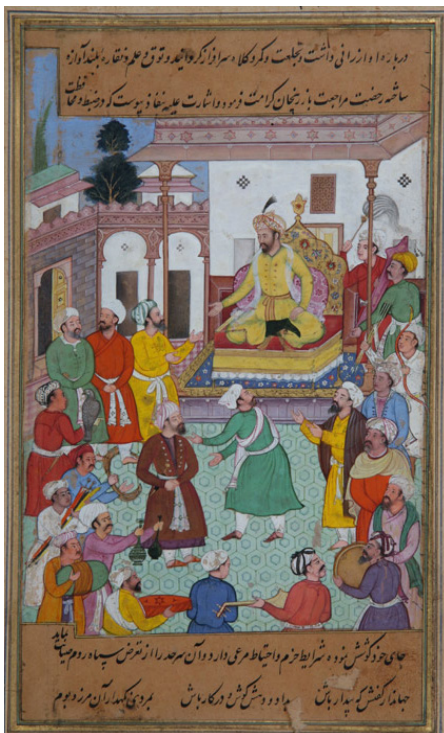 درباره او ارزانی داشت و بخلعت و کمر و کلاه سرافراز گردانید و توق و علم و نقاره بلند آوازه
ساخته رخصت مراجعت بازرنجان کرامت فرمود و اشارت علیه نفاذ پیوست که در ضبط و محافظت
جای خود کوشش نموده شرایط حزم و احتیاط مرعی دارد و آن سرحد را از تعرض سپاه روم صیانت نماید
جهاندار گفتش که بیدار باش بداد و دهش کوش و در کار باش بمردی نگهدار آن مرز و بوم